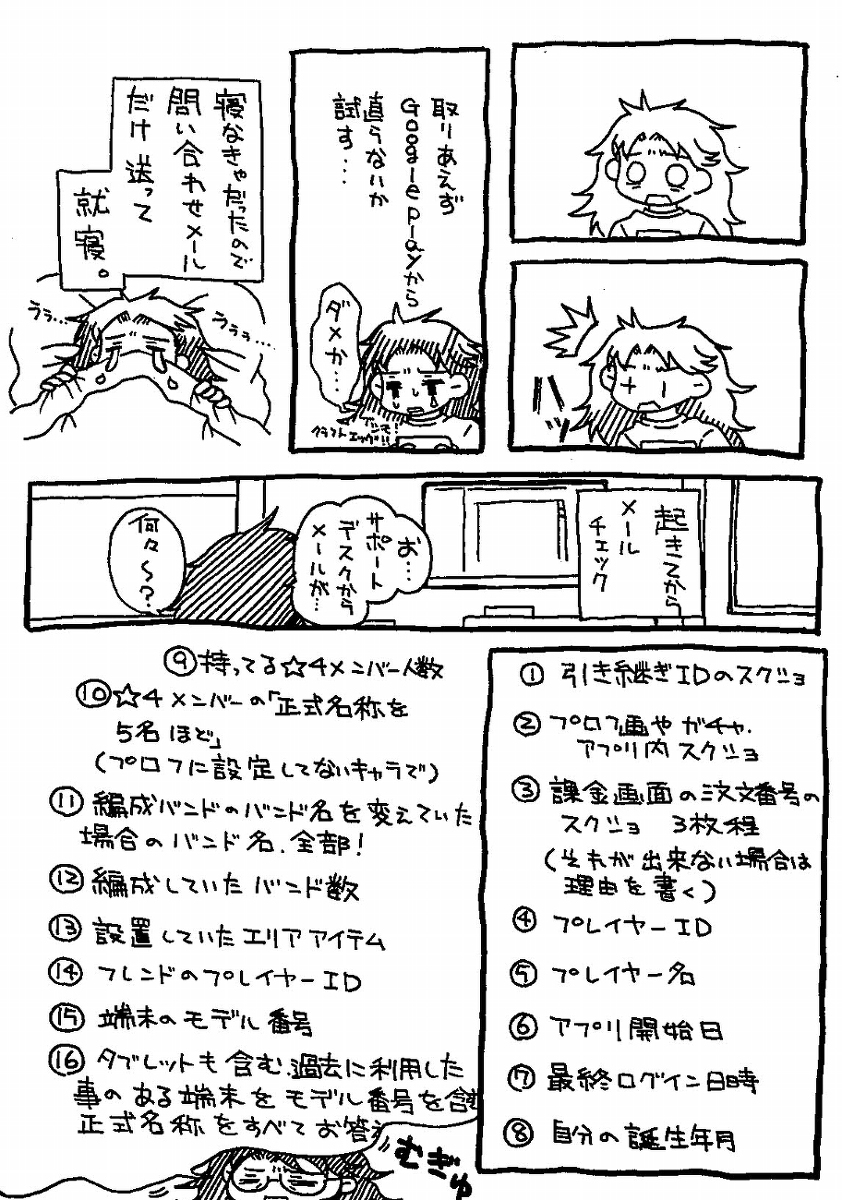 取りあえず
Google playから
直らないか
試す・・・
ダメか・・・
クラフトエッグ!!
寝なきゃだったので
問い合わせメール
だけ送って
就寝。
うぅ・・・
うぅぅ・・・・
起きてから
メール
チェック
お・・・
サポート
デスクから
メールが・・・
何々〜?
① 引き継ぎIDのスクショ
② プロフ画やガチャ、
アプリ内スクショ
③ 課金画面の注文番号の
スクショ 3枚程
(それが出来ない場合は
理由を書く)
④ プレイヤーID
⑤ プレイヤー名
⑥ アプリ開始日
⑦ 最終ログイン日時
⑧ 自分の誕生年月
⑨ 持ってる☆4メンバー人数
⑩ ☆4メンバーの「正式名称を
5名ほど」
(プロフに設定してないキャラで)
⑪ 編成バンドのバンド名を変えていた
場合のバンド名、全部!
⑫ 編成していたバンド数
⑬ 設置していたエリアアイテム
⑭ フレンドのプレイヤーID
⑮ 端末のモデル番号
⑯ タブレットも含む、過去に利用した
事のある端末をモデル番号を含む
正式名称をすべてお答え
むぎゅ